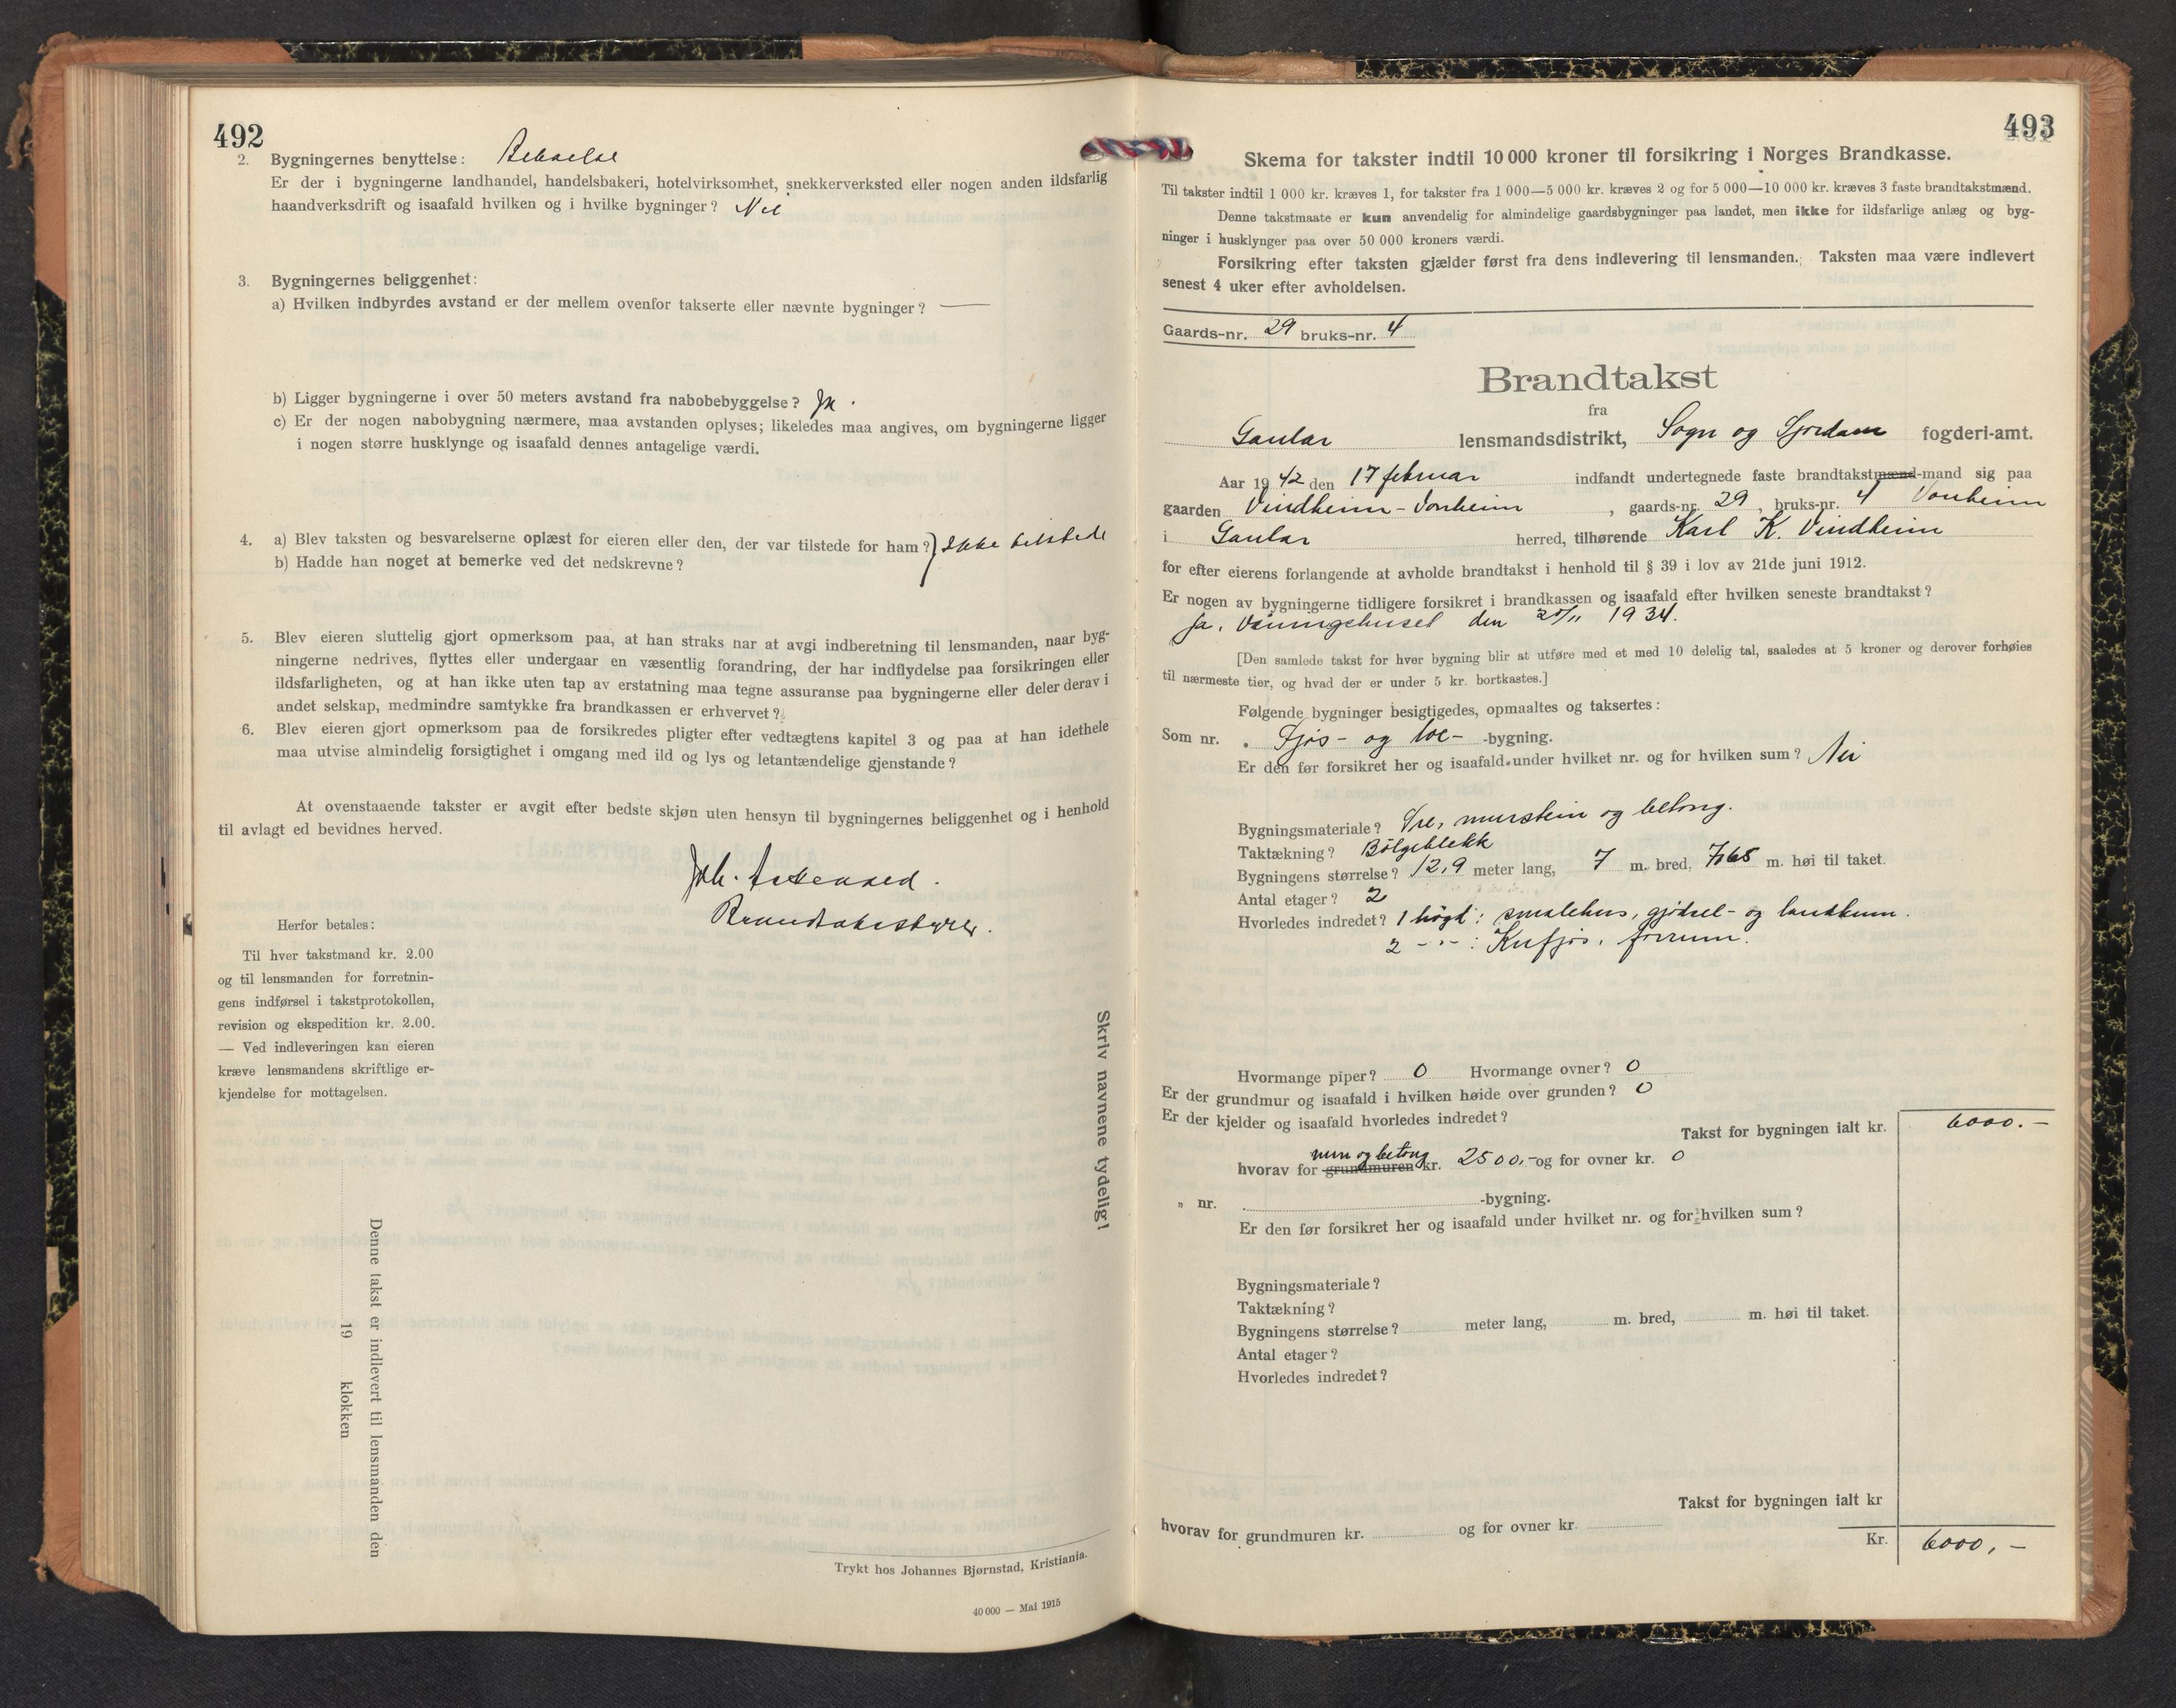 492
2. Bygningernes benyttelse: Beboelse
Er der i bygningerne landhandel, handelsbakeri, hotelvirksomhet, snekkerverksted eller nogen anden ildsfarlig
haandverksdrift og isaafald hvilken og i hvilke bygninger? Nei
3. Bygningernes beliggenhet:
a) Hvilken indbyrdes avstand er der mellem ovenfor takserte eller nævnte bygninger? —
b) Ligger bygningerne i over 50 meters avstand fra nabobebyggelse? Ja.
c) Er der nogen nabobygning nærmere, maa avstanden oplyses; likeledes maa angives, om bygningerne ligger
i nogen større husklynge og isaafald dennes antagelige værdi.
4. a) Blev taksten og besvarelserne oplæst for eieren eller den, der var tilstede for ham? } Ikke tilstede
b) Hadde han noget at bemerke ved det nedskrevne?
5. Blev eieren sluttelig gjort opmerksom paa, at han straks har at avgi indberetning til lensmanden, naar byg-
ningerne nedrives, flyttes eller undergaar en væsentlig forandring, der har indflydelse paa forsikringen eller
ildsfarligheten, og at han ikke uten tap av erstatning maa tegne assuranse paa bygningerne eller deler derav i
andet selskap, medmindre samtykke fra brandkassen er erhvervet?
6. Blev eieren gjort opmerksom paa de forsikredes pligter efter vedtægtens kapitel 3 og paa at han idethele
maa utvise almindelig forsigtighet i omgang med ild og lys og letantændelige gjenstande?
At ovenstaaende takster er avgit efter bedste skjøn uten hensyn til bygningernes beliggenhet og i henhold
til avlagt ed bevidnes herved.
Joh.
Brandtakstbestyrer.
Herfor betales:
Til hver takstmand kr. 2.00
og til lensmanden for forretnin-
gens indførsel i takstprotokollen,
revision og ekspedition kr. 2.00.
— Ved indleveringen kan eieren
kræve lensmandens skriftlige er-
kjendelse for mottagelsen.
Denne takst er indlevert til lensmanden den
19 klokken
Skriv navnene tydelig!
Trykt hos Johannes Bjørnstad, Kristiania.
40 000 — Mai 1915
493
Skema for takster indtil 10 000 kroner til forsikring i Norges Brandkasse.
Til takster indtil 1 000 kr. kræves 1, for takster fra 1 000—5 000 kr. kræves 2 og for 5 000—10 000 kr. kræves 3 faste brandtakstmænd.
Denne takstmaate er kun anvendelig for almindelige gaardsbygninger paa landet, men ikke for ildsfarlige anlæg og byg-
ninger i husklynger paa over 50 000 kroners værdi.
Forsikring efter taksten gjælder først fra dens indlevering til lensmanden. Taksten maa være indlevert
senest 4 uker efter avholdelsen.
Gaards-nr. 29 bruks-nr. 4
Brandtakst
fra
Gaular lensmandsdistrikt, Sogn og Fjordane fogderi-amt.
Aar 1942 den 17 februar indfandt undertegnede faste brandtakstmænd-mand sig paa
gaarden Vindheim - Vonheim, gaards-nr. 29, bruks-nr. 4 Vonheim
i Gaular herred, tilhørende Karl K. Vindheim
for efter eierens forlangende at avholde brandtakst i henhold til § 39 i lov av 21de juni 1912.
Er nogen av bygningerne tidligere forsikret i brandkassen og isaafald efter hvilken seneste brandtakst?
Ja. Våningshuset den /11 1934.
[Den samlede takst for hver bygning blir at utføre med et med 10 delelig tal, saaledes at 5 kroner og derover forhøies
til nærmeste tier, og hvad der er under 5 kr. bortkastes.]
Følgende bygninger besigtigedes, opmaaltes og taksertes:
Som nr. . Fjøs- og löe- -bygning.
Er den før forsikret her og isaafald under hvilket nr. og for hvilken sum? Nei
Bygningsmateriale? Tre, murstein og betong.
Taktækning? Bölgeblekk
Bygningens størrelse? 12,9 meter lang, 7 m. bred, 7,65 m. høi til taket.
Antal etager? 2
Hvorledes indredet? 1 högd: smalehus, gjödsel- og landkum.
2 -"-: Kufjös, fôrrum.
Hvormange piper? 0 Hvormange ovner? 0
Er der grundmur og isaafald i hvilken høide over grunden? 0
Er der kjelder og isaafald hvorledes indredet?
Takst for bygningen ialt kr. 6000.-
mur og betong
hvorav for grundmuren kr. 2500,- og for ovner kr. 0
„ nr. -bygning.
Er den før forsikret her og isaafald under hvilket nr. og for hvilken sum?
Bygningsmateriale?
Taktækning?
Bygningens størrelse? meter lang, m. bred, m. høi til taket.
Antal etager?
Hvorledes indredet?
Takst for bygningen ialt kr
hvorav for grundmuren kr. og for ovner kr.
Kr. 6000,-